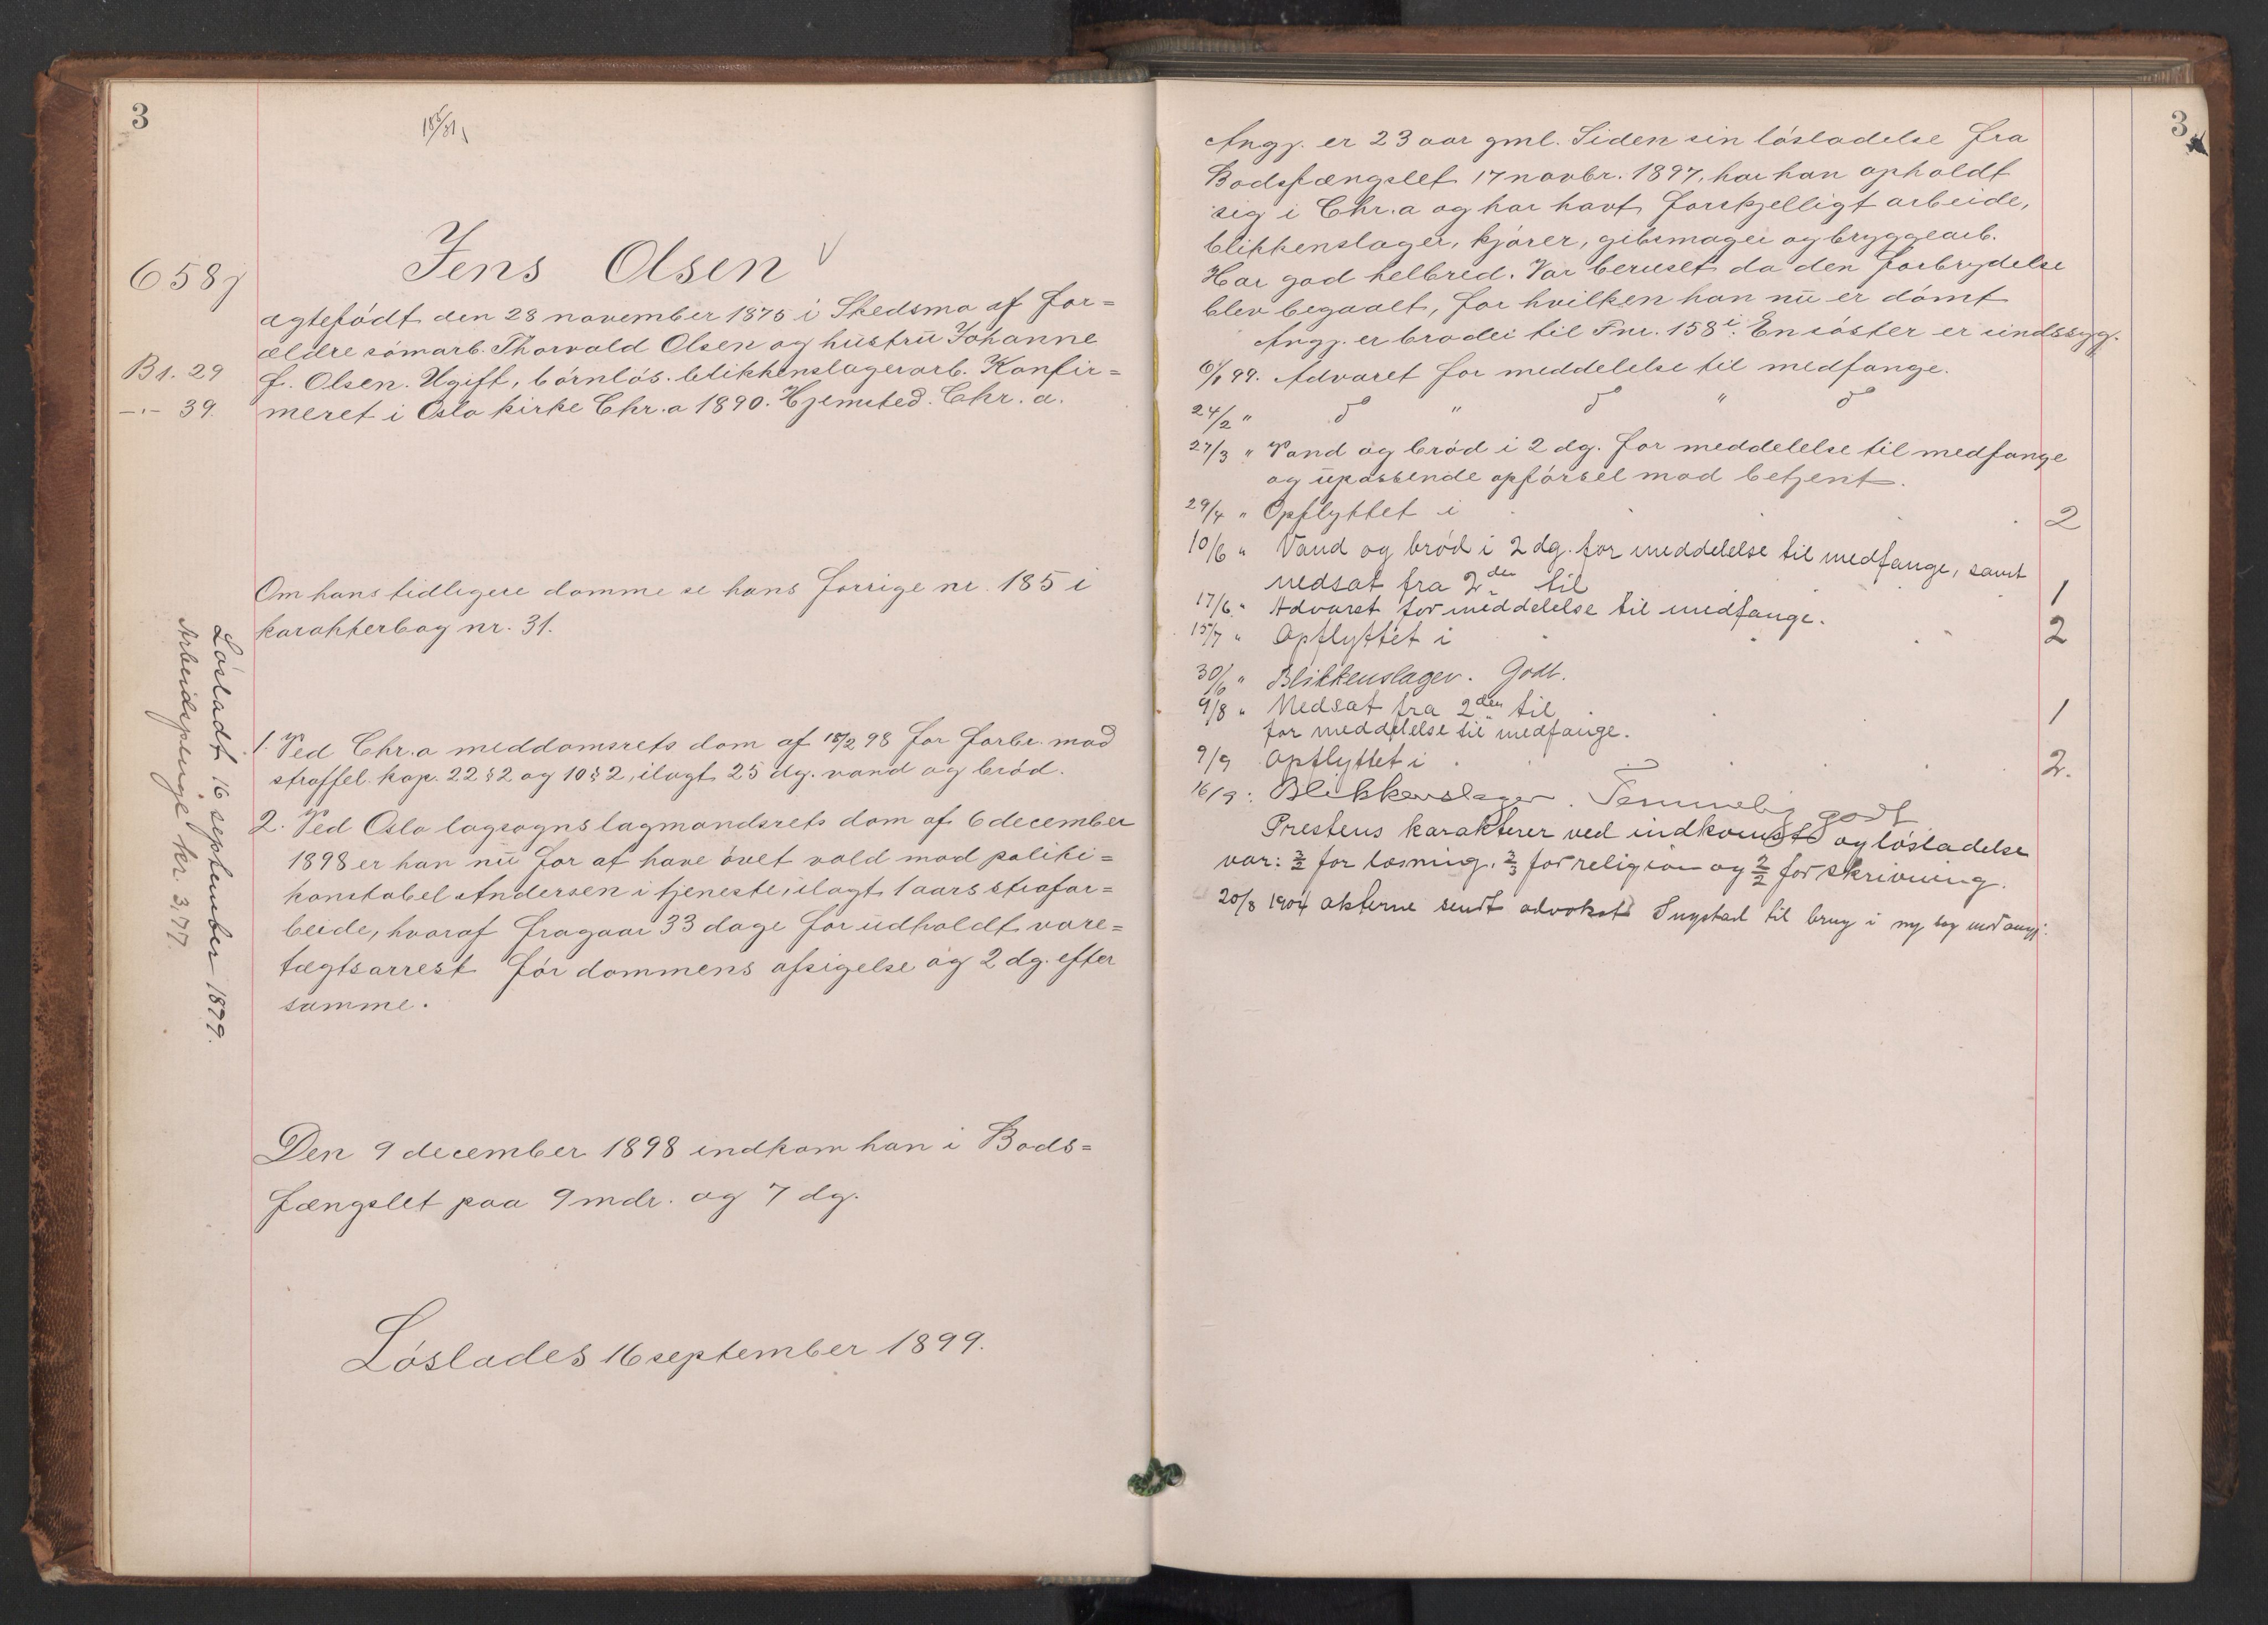 3
185/31
Jens Olsen
658j
ægtefødt den 28 november 1875 i Skedsmo af for=
ældre sömarb. Thorvald Olsen og hustru Johanne
B1. 29
f. Olsen. Ugift, börnlös. blikkenslagerarb. Konfir=
-"- 39.
meret i Oslo kirke Chr.a 1890. Hjemsted. Chr.a.
Om hans tidligere domme se hans forrige nr. 185 i
karakterbog nr. 31.
1. Ved Chr.a meddomsrets dom af 18/2 98 for forbr. mod
straffel. kap. 22 § 2 og 10 § 2, ilagt 25 dg. vand og bröd.
2. Ved Oslo lagsogns lagmandsrets dom af 6 december
1898 er han nu for at have övet vold mod politi=
konstabel Andersen i tjeneste, ilagt 1 aars strafar=
beide, hvoraf fragaar 33 dage for udholdt vare=
tægtsarrest för dommens afsigelse og 2 dg. efter
samme.
Lösladt 16 september 1899.
Arbeidspenge kr. 3,77.
Den 9 december 1898 indkom han i Bods=
fængslet paa 9 mdr. og 7 dg.
Löslades 16 september 1899.
3
Angj. er 23 aar gml. Siden sin lösladelse fra
Bodsfængslet 17 novbr. 1897, har han opholdt
sig i Chr.a og har havt forskjelligt arbeide,
blikkenslager, kjörer, gibsmager og bryggearb.
Har god helbred. Var beruset da den forbrydelse
blev begaaet, for hvilken han nu er dömt
Angj. er broder til Fnr. 158 i. En söster er sindssyg.
6/1 99. Advaret for meddelelse til medfange.
24/2 " do " do " do
27/3 " Vand og bröd i 2 dg. for meddelelse til medfange
og upassende opförsel mod betjent.
29/4 " Opflyttet i 2
10/6 " Vand og bröd i 2 dg. for meddelelse til medfange, samt
nedsat fra 2den til 1
17/6 " Advaret for meddelelse til medfange.
15/7 " Opflyttet i 2
30/6 " Blikkenslager. Godt.
9/8 " Nedsat fra 2den til 1
for meddelelse til medfange.
9/9 Opflyttet i 2.
16/9: Blikkenslager. Temmelig godt
Prestens karakterer ved indkomst og lösladelse
var: 3/2 for læsning, 3/3 for religion og 2/2 for skrivning.
20/8 1904 akterne sendt advokat til brug i ny sag mod angj.